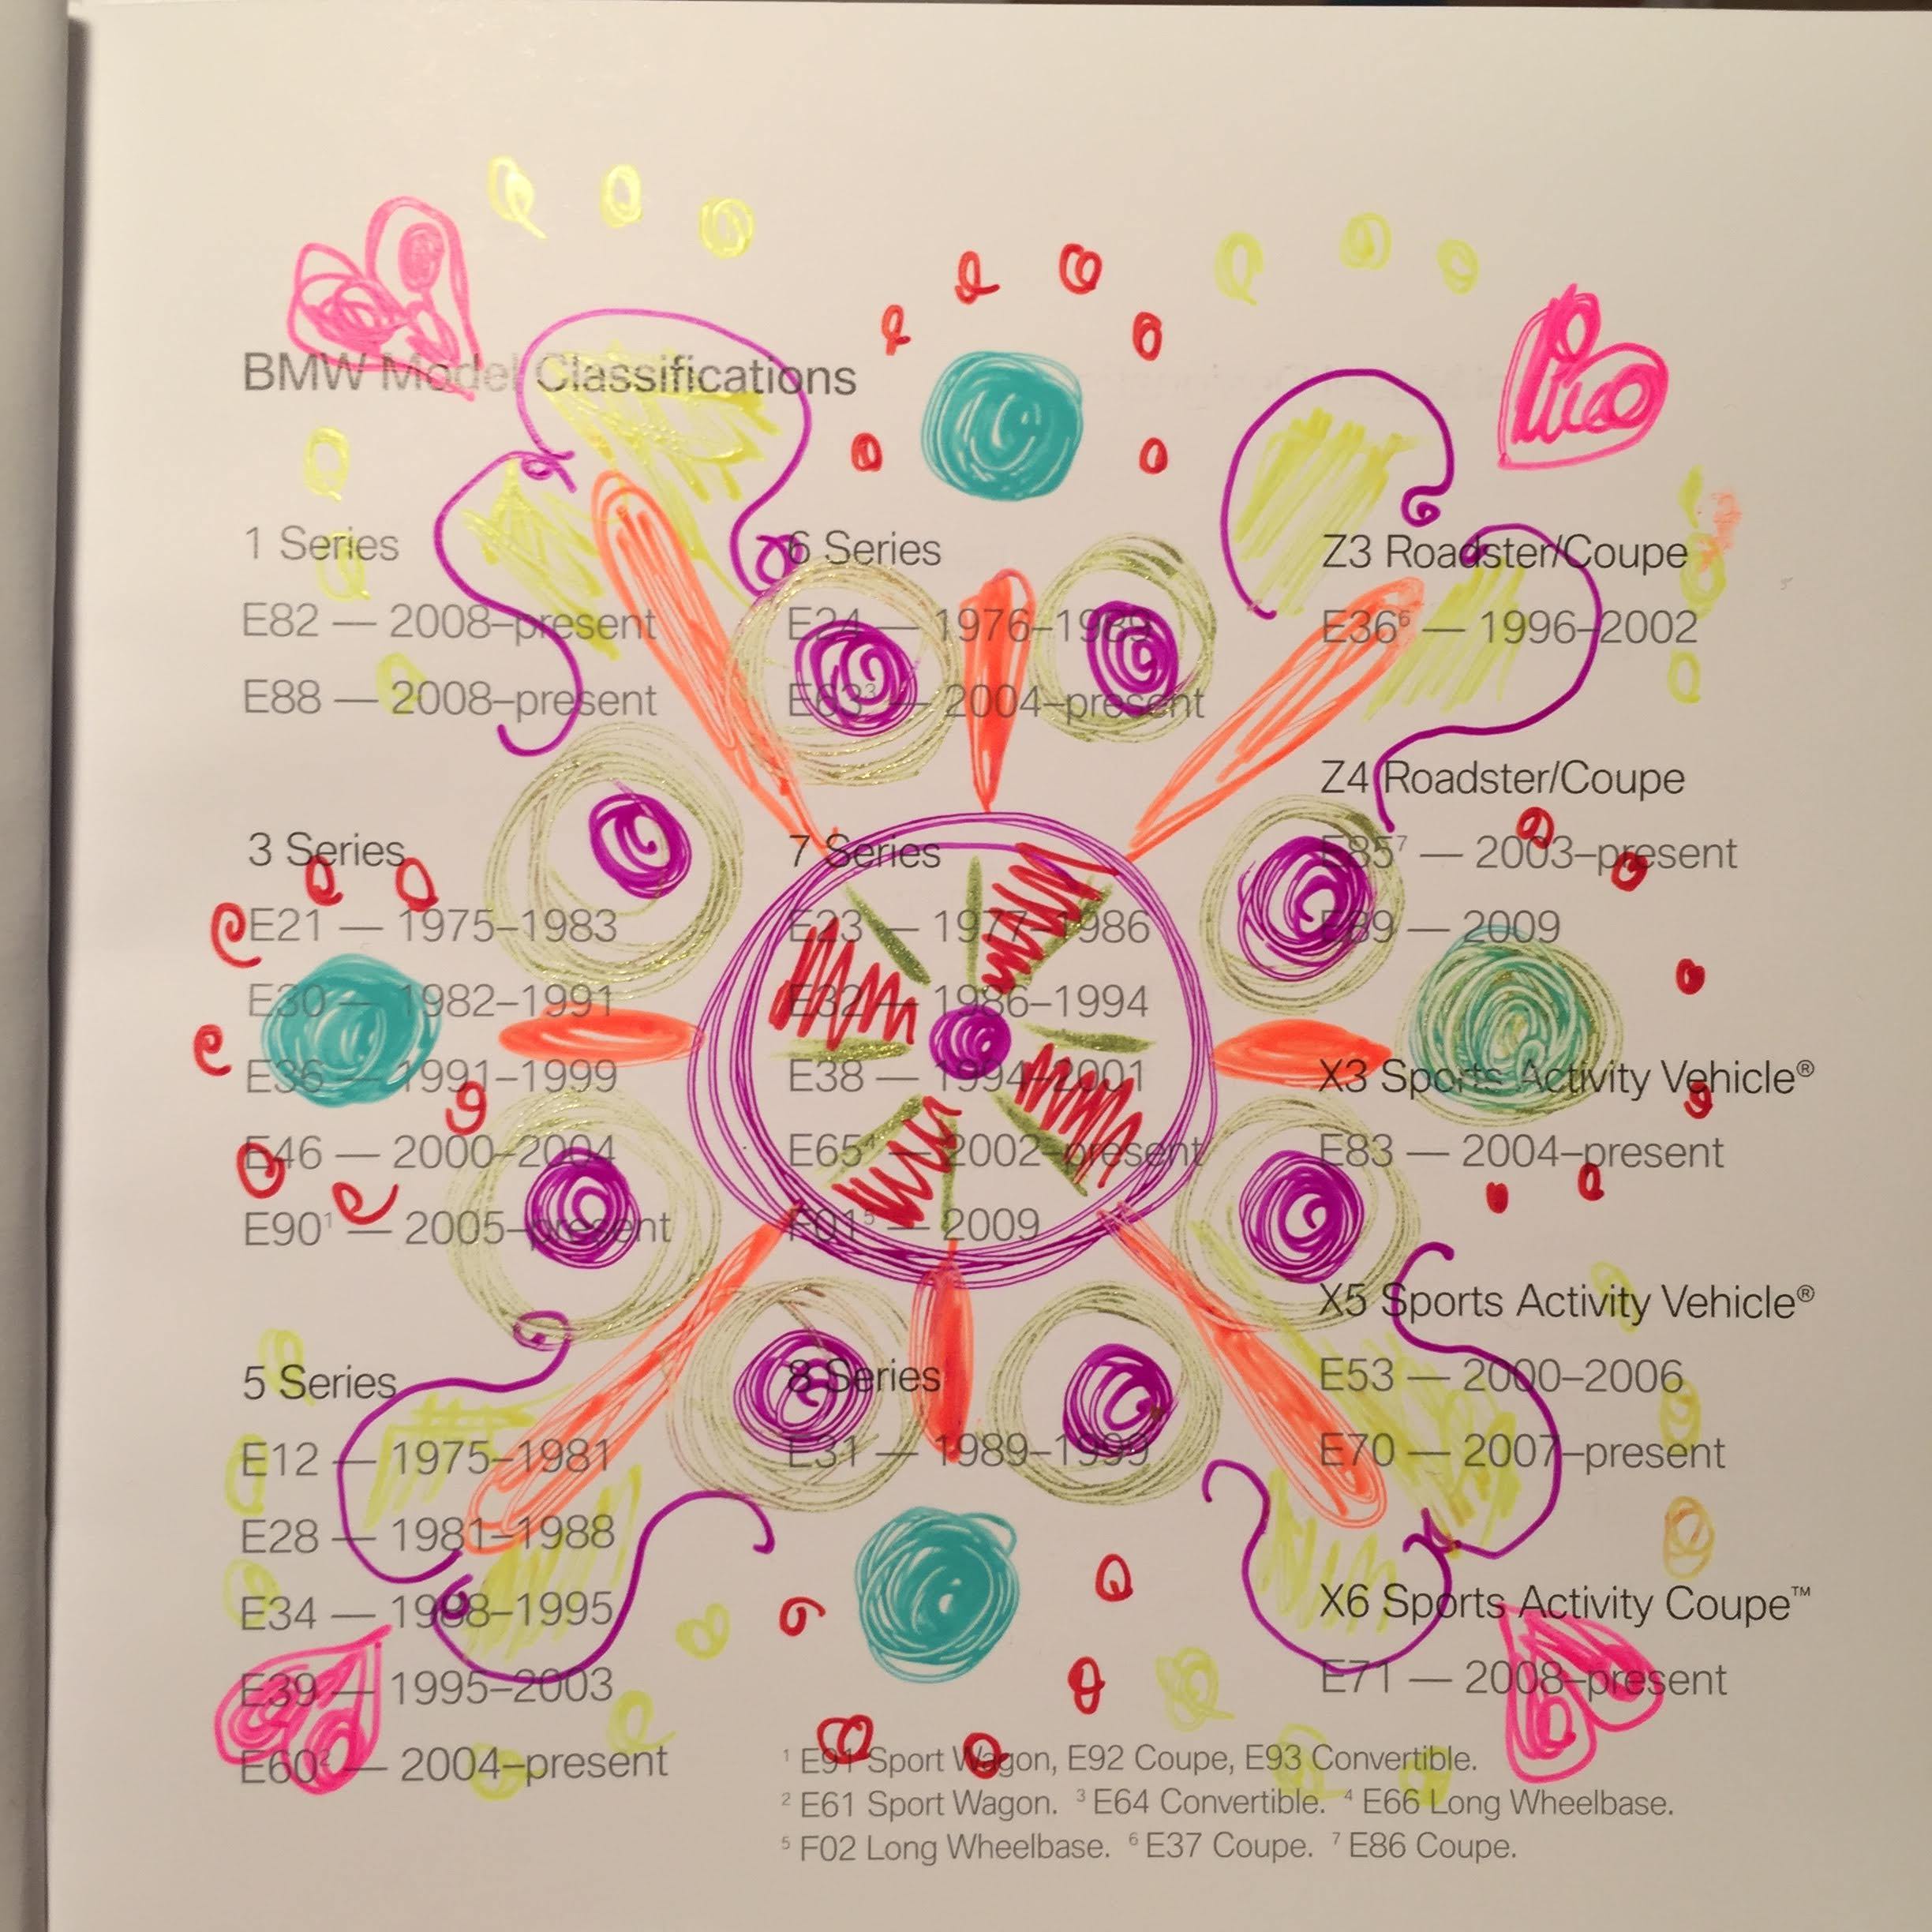 BMW Model Classifications
1 Series
E82 — 2008–present
E88 — 2008–present
3 Series
E21 — 1975–1983
E30 — 1982–1991
E36 — 1991–1999
E46 — 2000–2004
E90¹ — 2005–present
5 Series
E12 — 1975–1981
E28 — 1981–1988
E34 — 1988–1995
E39 — 1995–2003
E60² — 2004–present
6 Series
E24 — 1976–1989
E63³ — 2004–present
7 Series
E23 — 1977–1986
E32 — 1986–1994
E38 — 1994–2001
E65⁴ — 2002–present
F01⁵ — 2009
8 Series
E31 — 1989–1999
Z3 Roadster/Coupe
E36⁶ — 1996–2002
Z4 Roadster/Coupe
E85⁷ — 2003–present
E89 — 2009
X3 Sports Activity Vehicle®
E83 — 2004–present
X5 Sports Activity Vehicle®
E53 — 2000–2006
E70 — 2007–present
X6 Sports Activity Coupe™
E71 — 2008–present
¹ E91 Sport Wagon, E92 Coupe, E93 Convertible.
² E61 Sport Wagon. ³ E64 Convertible. ⁴ E66 Long Wheelbase.
⁵ F02 Long Wheelbase. ⁶ E37 Coupe. ⁷ E86 Coupe.